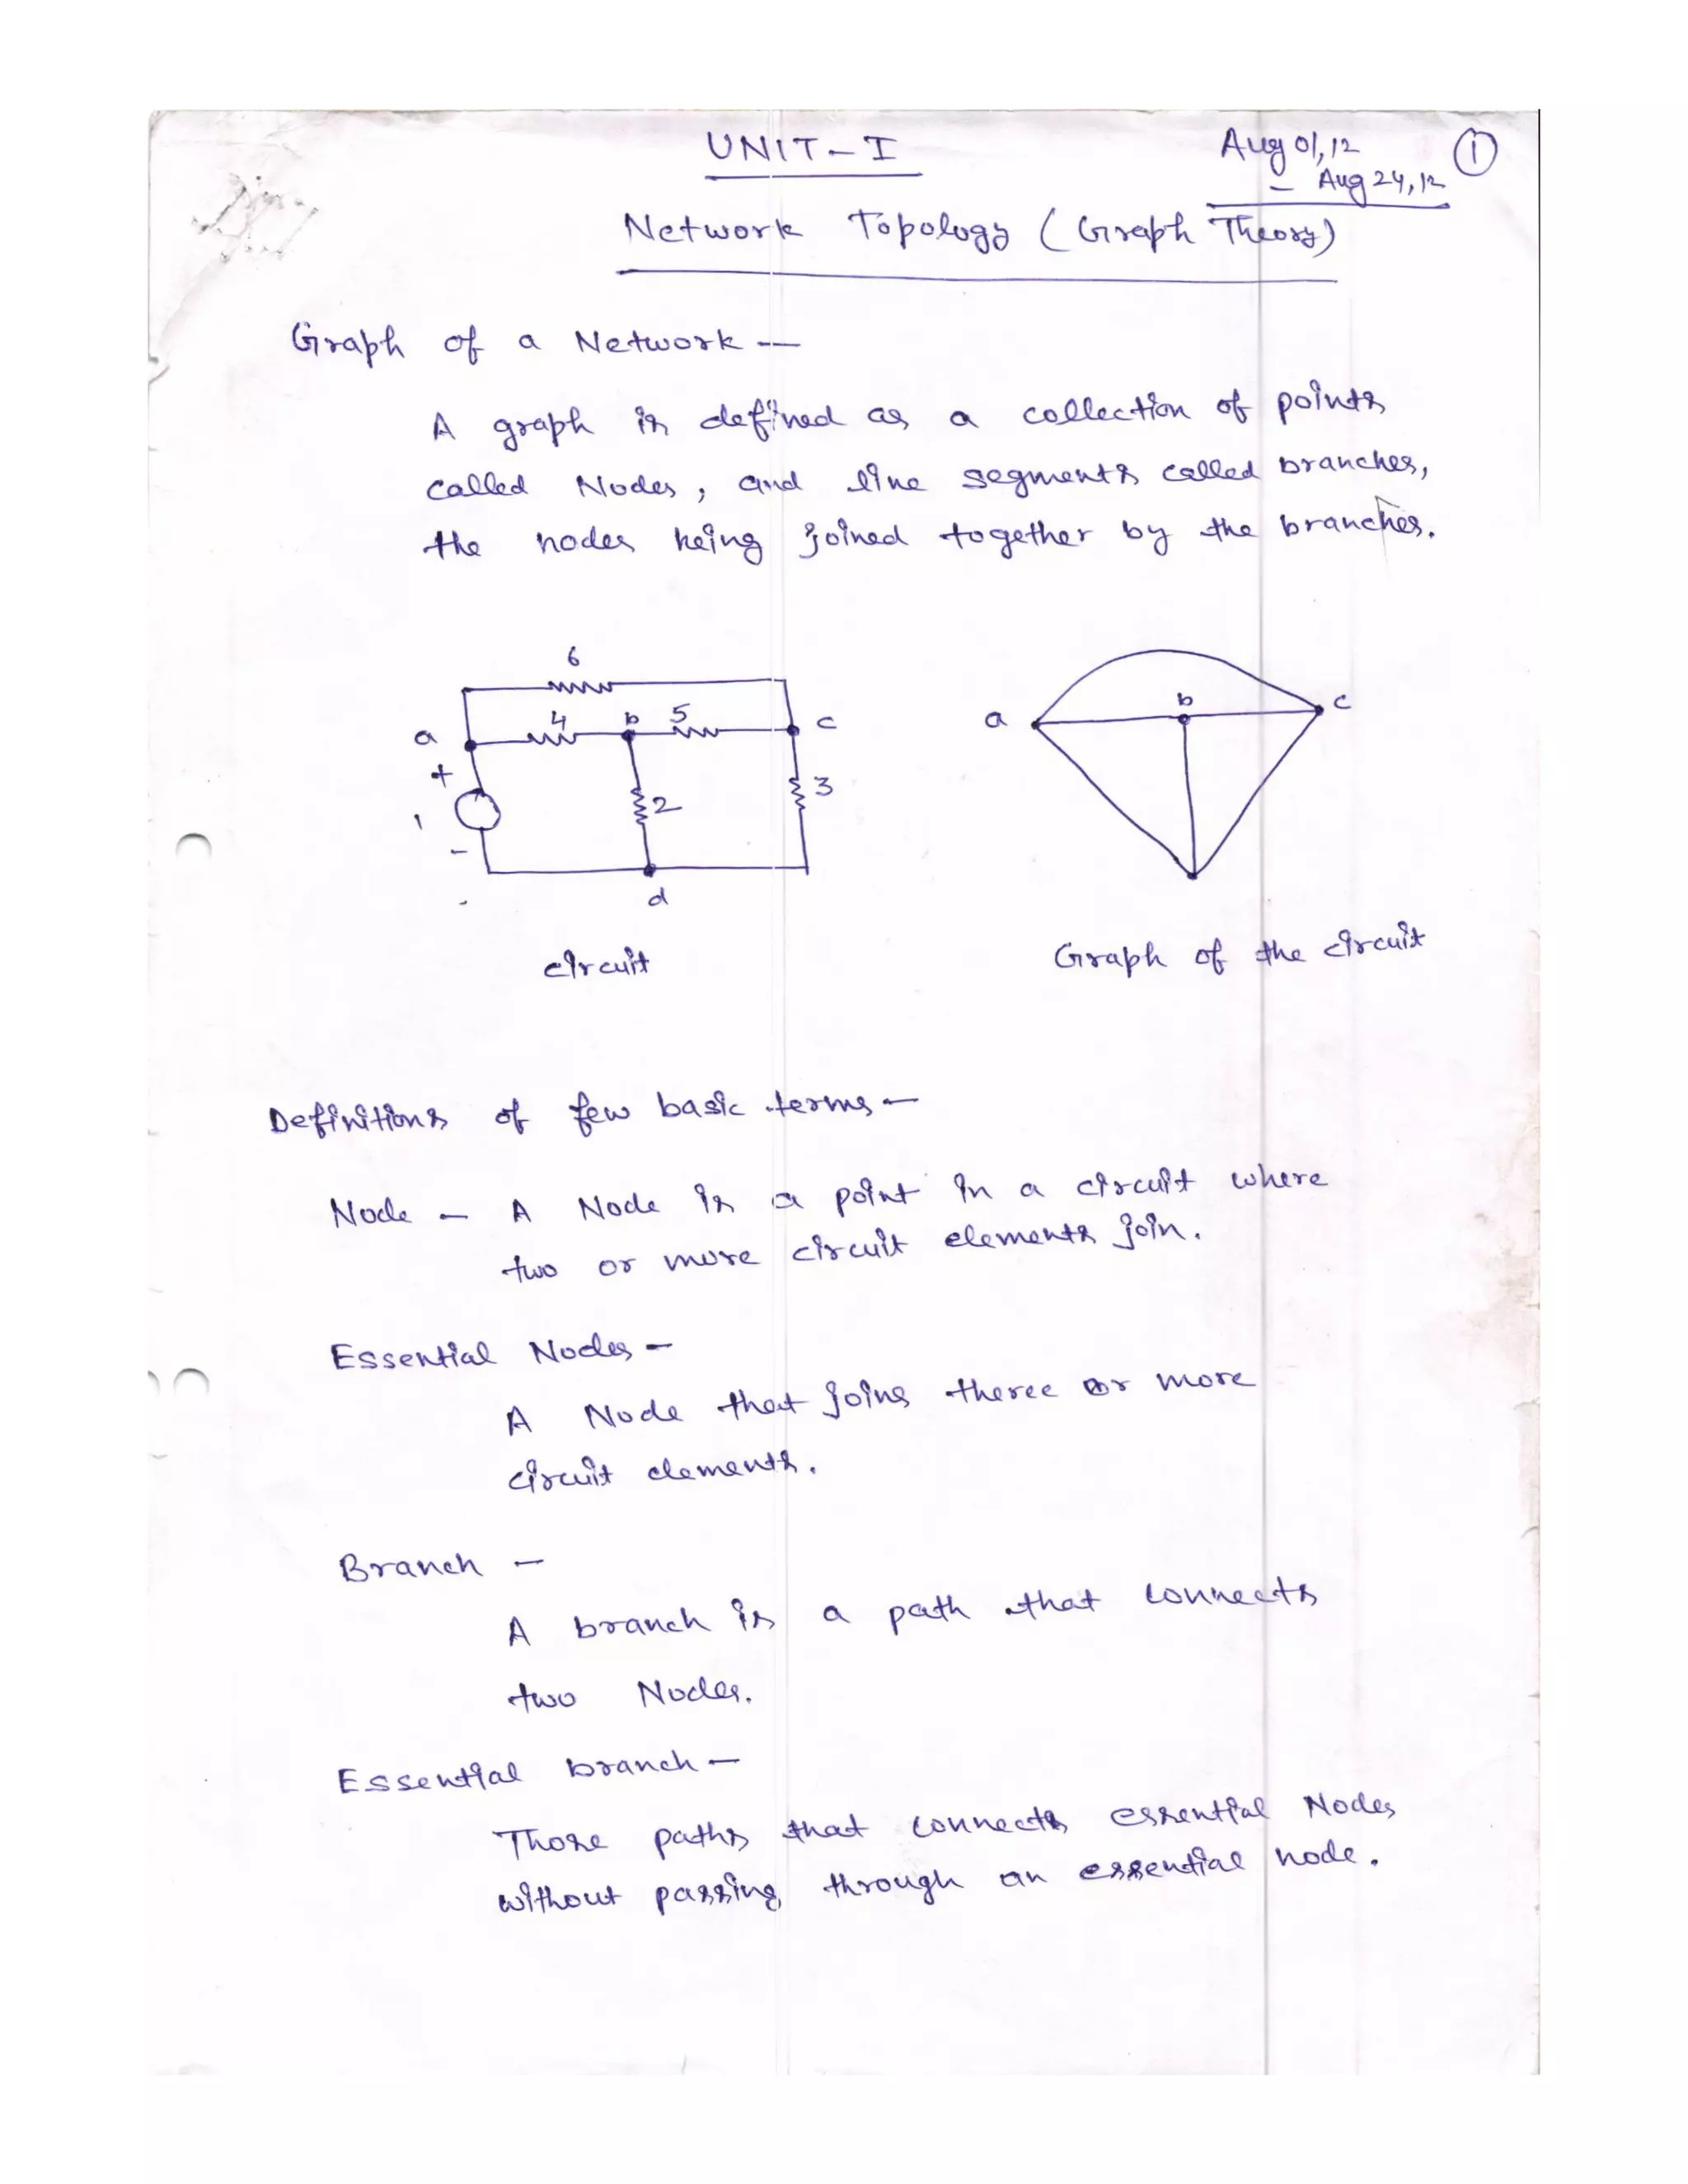 UNIT-I
Aug 01, 12
- Aug 24, 12
1
Network Topology (Graph Theory)
Graph of a Network —
A graph is defined as a collection of points
called Nodes, and line segments called branches,
the nodes being joined together by the branches.
6
4 b 5
a c
+
1 2 3
-
d
circuit
b
a c
Graph of the circuit
Definitions of few basic terms —
Node — A Node is a point in a circuit where
two or more circuit elements join.
Essential Nodes —
A Node that joins theree or more
circuit elements.
Branch —
A branch is a path that connects
two Nodes.
Essential branch —
Those paths that connects essential Nodes
without passing through an essential node.